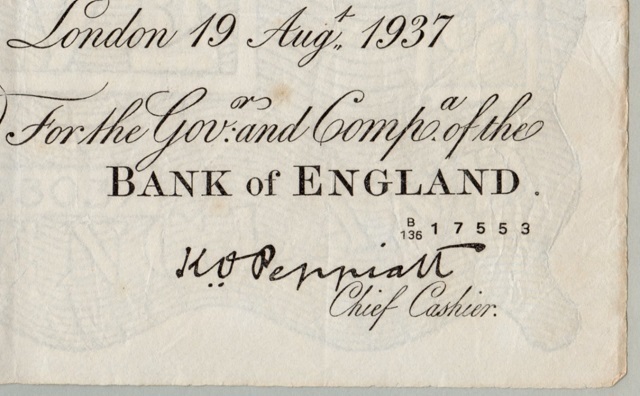 London 19 Augt. 1937
For the Govr. and Compa. of the
BANK of ENGLAND.
B
136 17553
K.O. Peppiatt
Chief Cashier.